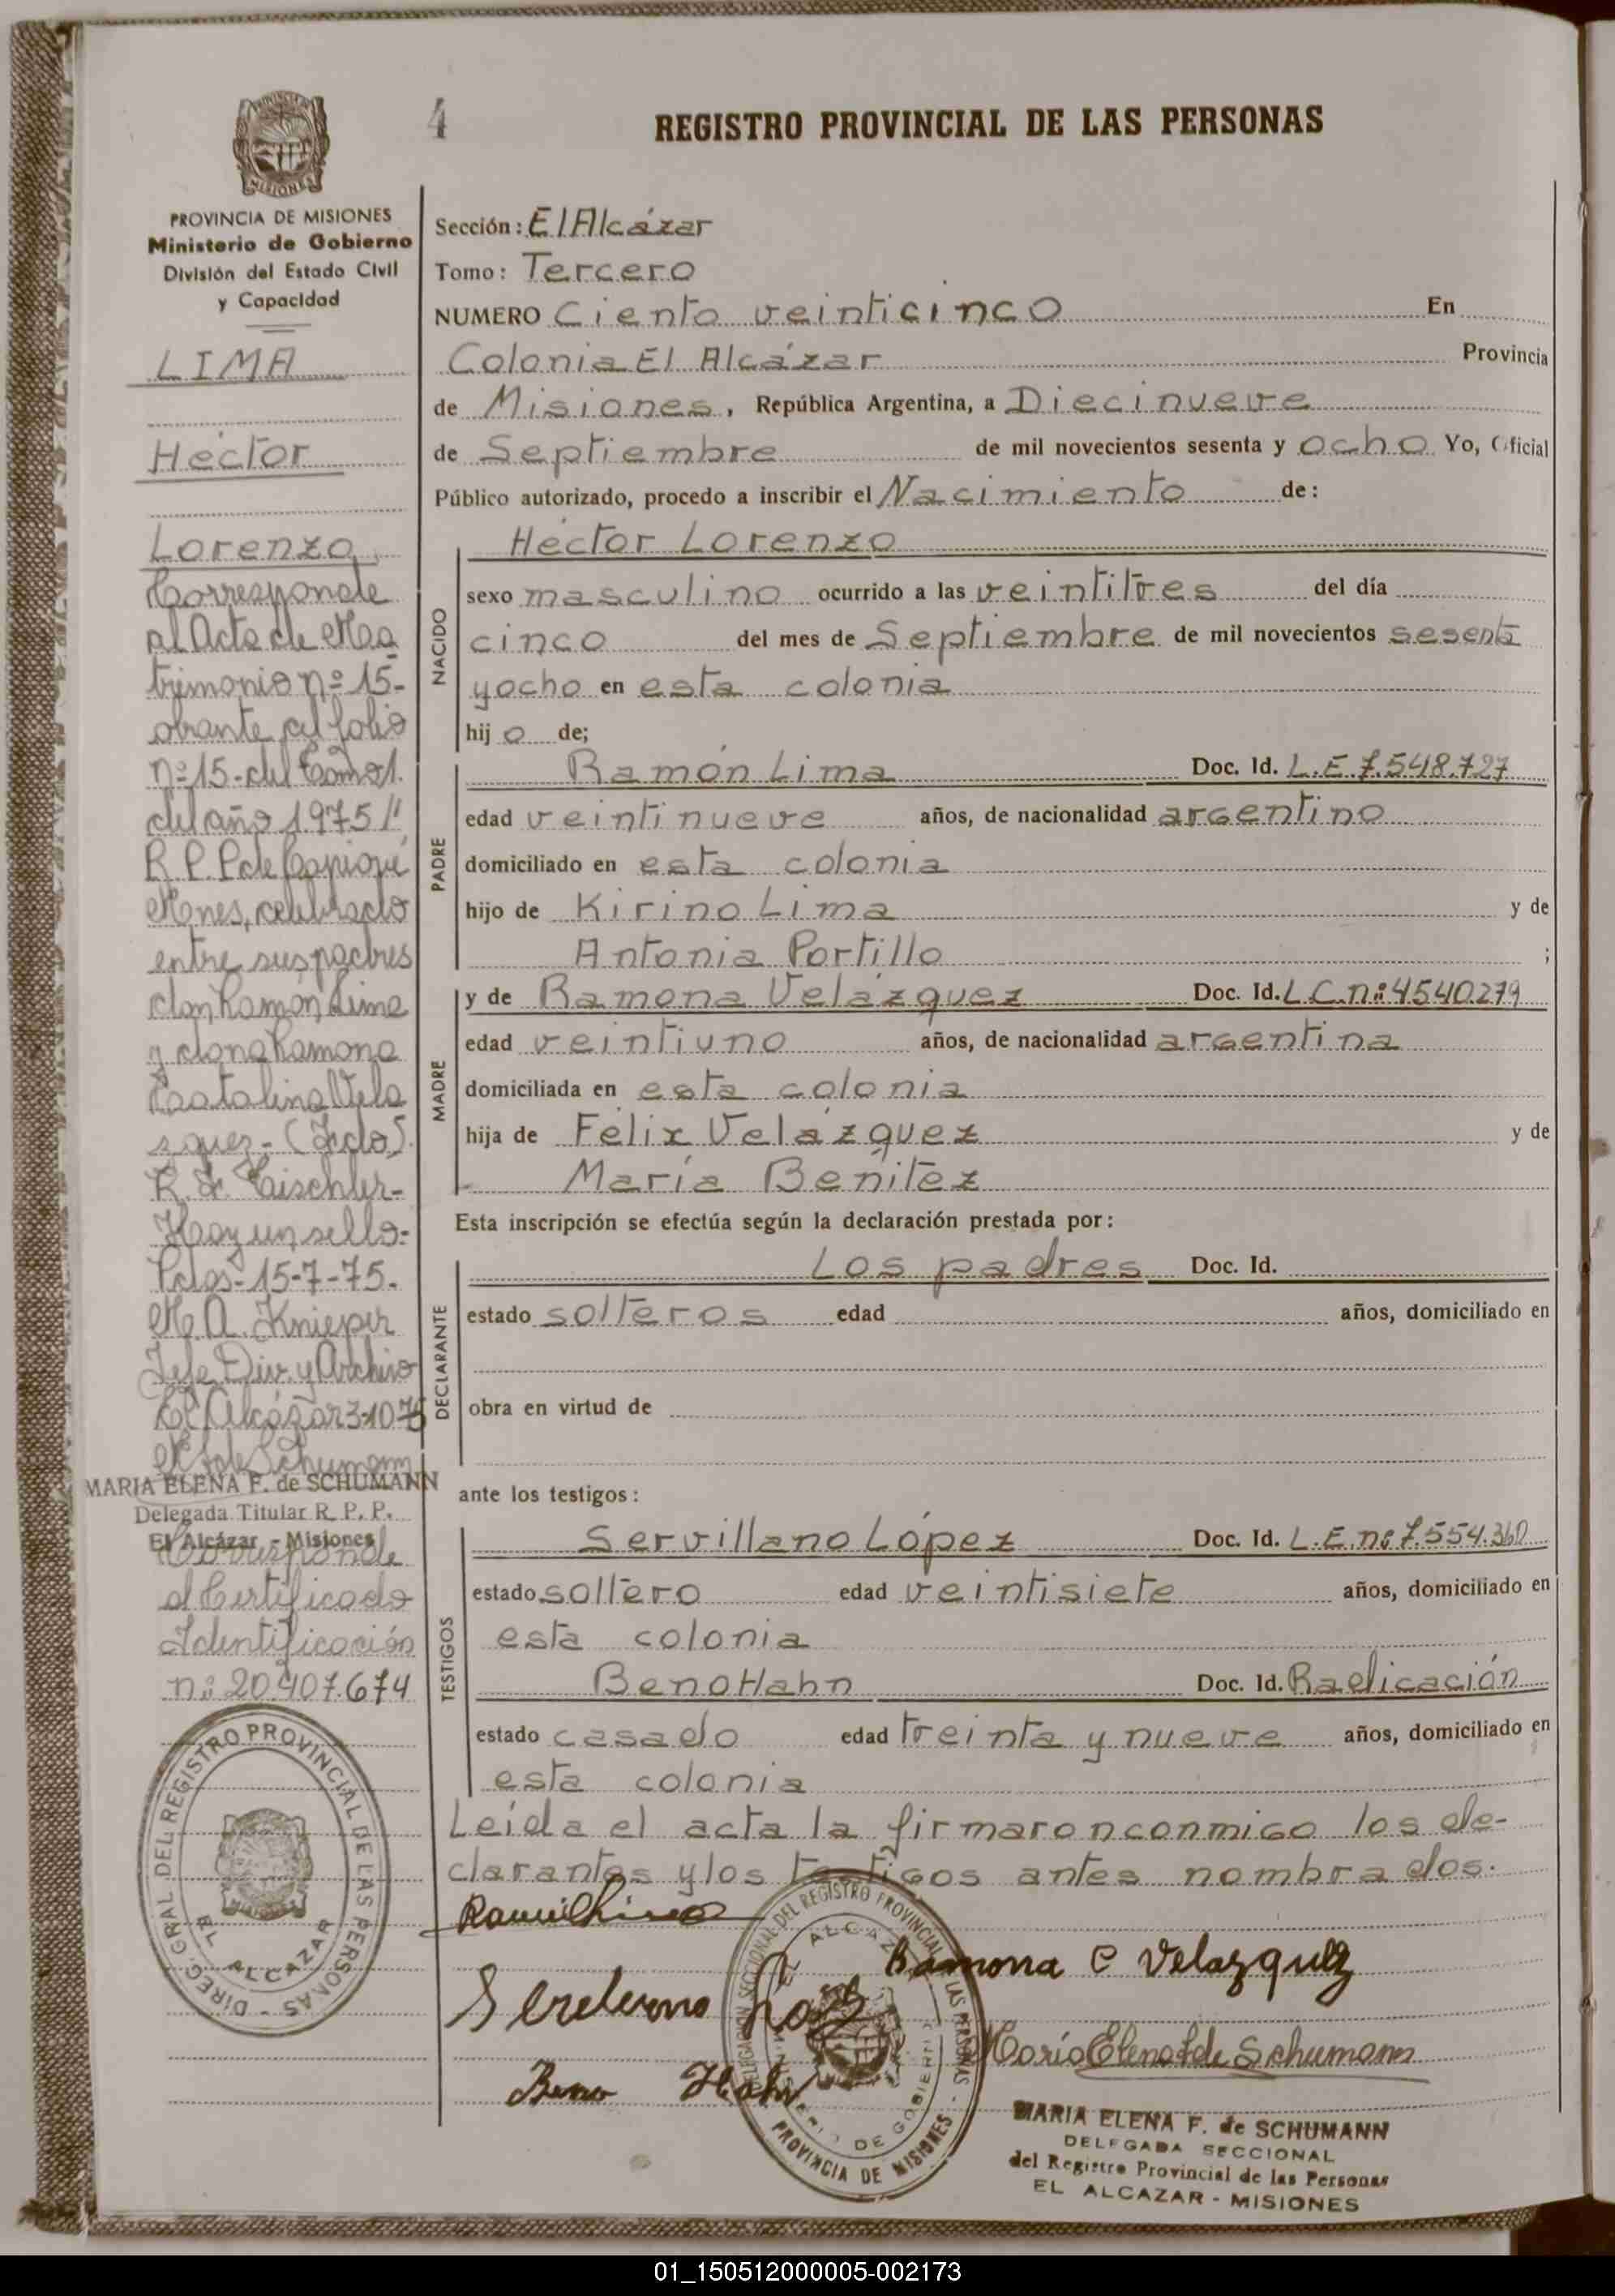 4
REGISTRO PROVINCIAL DE LAS PERSONAS
MISIONES
PROVINCIA DE MISIONES
Ministerio de Gobierno
División del Estado Civil
y Capacidad
LIMA
Héctor
Lorenzo
Corresponde
al Acta de Ma
trimonio nº 15-
obrante al folio
nº 15- del Tomo 1.
del año 1975//
R. P. P de Capioví
Mnes, celebrado
entre sus padres
don Ramón Lima
y dona Ramona
Catalina Vela
zquez- (Fdo).
R. F. Taischler-
Hay un sello-
Pdas- 15-7-75.
M. A. Knieper
Jefe Div. y Archivo
El Alcázar 3-10-75
M F de Schumann
MARIA ELENA F. de SCHUMANN
Delegada Titular R. P. P.
El Alcázar - Misiones
Corresponde
al Certificado
Identificación
nº: 20.907.674
DIREC. GRAL DEL REGISTRO PROVINCIAL DE LAS PERSONAS -
EL ALCAZAR
Sección: El Alcázar
Tomo: Tercero
NUMERO Ciento veinticinco En
Colonia El Alcázar Provincia
de Misiones, República Argentina, a Diecinueve
de Septiembre de mil novecientos sesenta y ocho Yo, Oficial
Público autorizado, procedo a inscribir el Nacimiento de:
NACIDO
Héctor Lorenzo
sexo masculino ocurrido a las veintitres del día
cinco del mes de Septiembre de mil novecientos sesenta
y ocho en esta colonia
hij o de;
PADRE
Ramón Lima Doc. Id. L.E 7.548.727
edad veintinueve años, de nacionalidad argentino
domiciliado en esta colonia
hijo de Kirino Lima y de
Antonia Portillo ;
MADRE
y de Ramona Velázquez Doc. Id. L.C.nº:4540.279
edad veintiuno años, de nacionalidad argentina
domiciliada en esta colonia
hija de Félix Velázquez y de
María Benítez
Esta inscripción se efectúa según la declaración prestada por:
DECLARANTE
Los padres Doc. Id.
estado solteros edad años, domiciliado en
obra en virtud de
ante los testigos:
TESTIGOS
Servillano López Doc. Id. L.E.nº:7.554.360
estado soltero edad veintisiete años, domiciliado en
esta colonia
Beno Hahn Doc. Id. Radicación
estado casado edad treinta y nueve años, domiciliado en
esta colonia
Leída el acta la firmaron conmigo los de-
clarantes y los testigos antes nombrados.
Ramona C Velazquez
María Elena F de Schumann
Beno Hahn
DELEGACION SECCIONAL DEL REGISTRO PROVINCIAL DE LAS PERSONAS -
EL ALCAZAR
MINISTERIO DE GOBIERNO
PROVINCIA DE MISIONES
MARIA ELENA F. de SCHUMANN
DELEGADA SECCIONAL
del Registro Provincial de las Personas
EL ALCAZAR - MISIONES
01_150512000005-002173